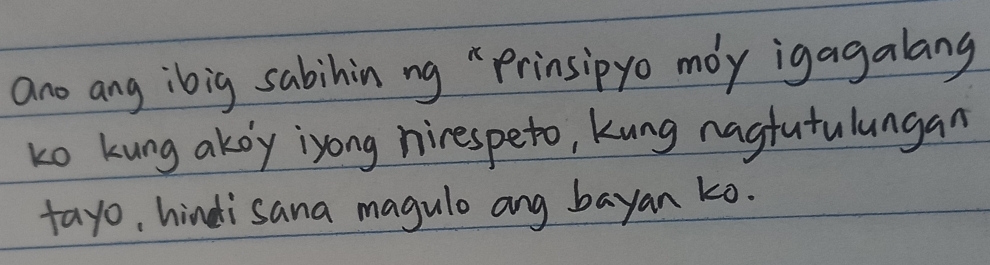 Ano ang ibig sabihin ng "Prinsipyo mo'y igagalang
ko kung ako'y iyong nirespeto, kung nagtutulungan
tayo, hindi sana magulo ang bayan ko.